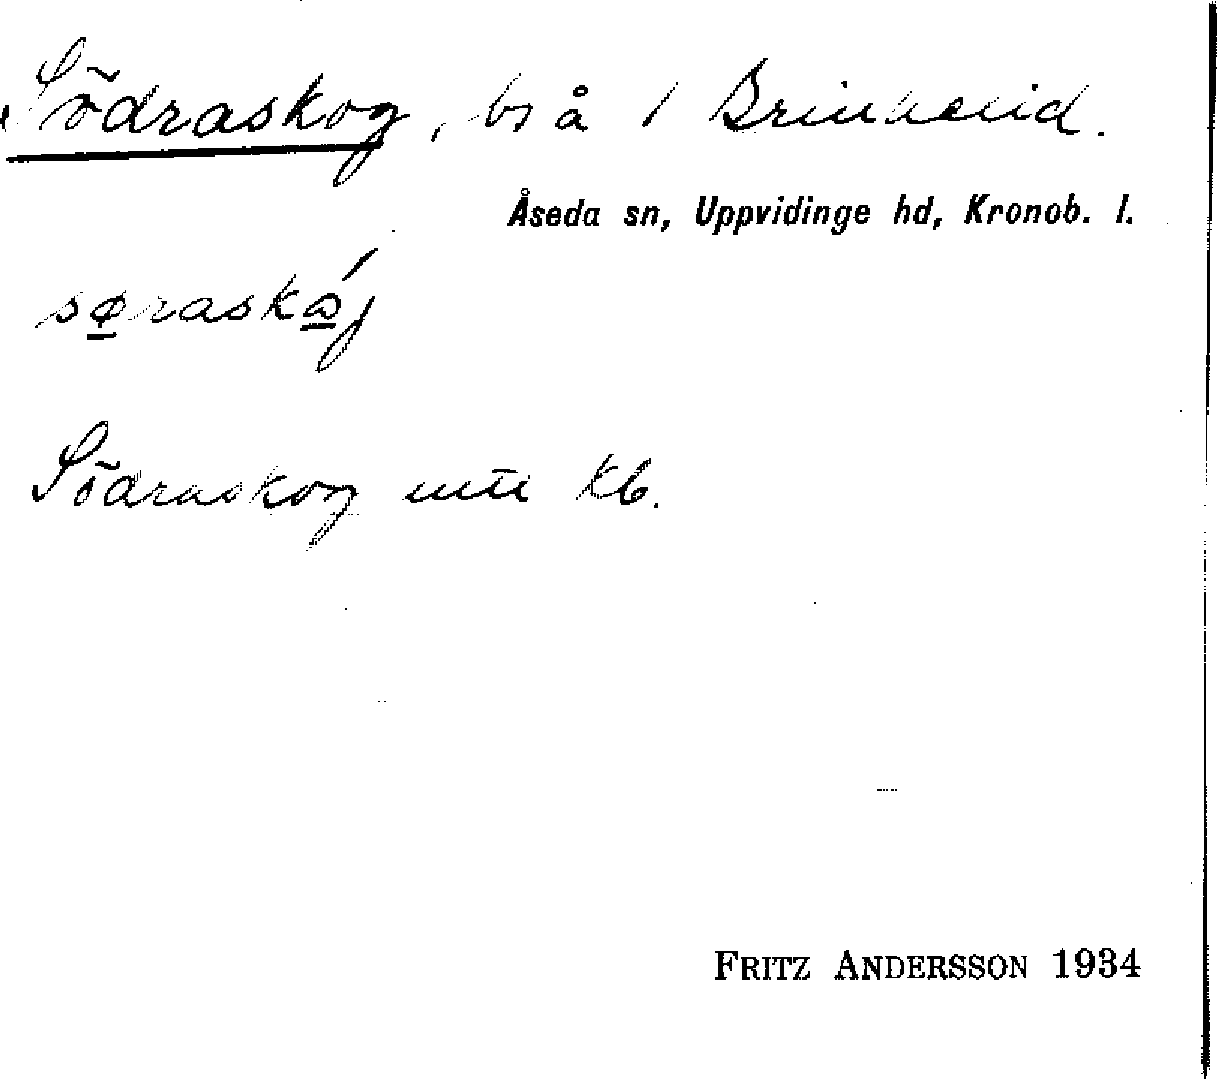 Södraskog, bs å 1 Brinkelid.
Åseda sn, Uppvidinge hd, Kronob. l.
søraskåj
Södraskog kb.
FRITZ ANDERSSON 1934